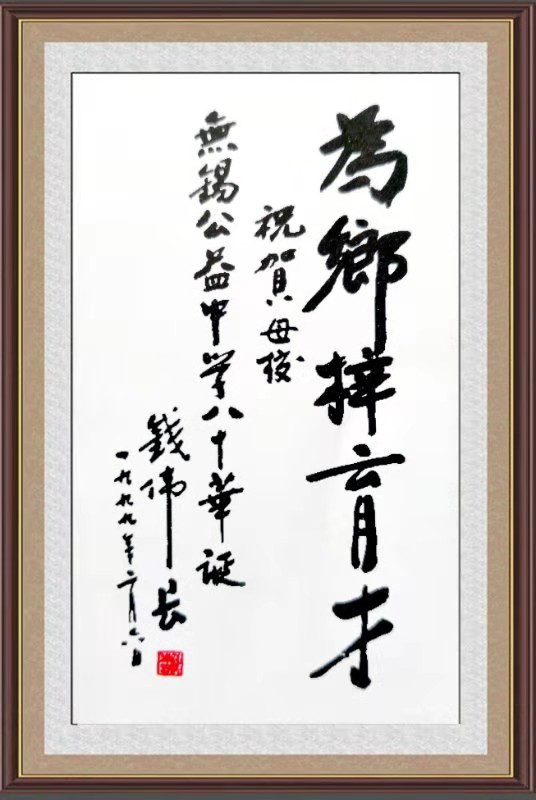 為鄉梓育才
祝賀母校
無錫公益中学八十華诞
錢伟长
一九九九年二月六日